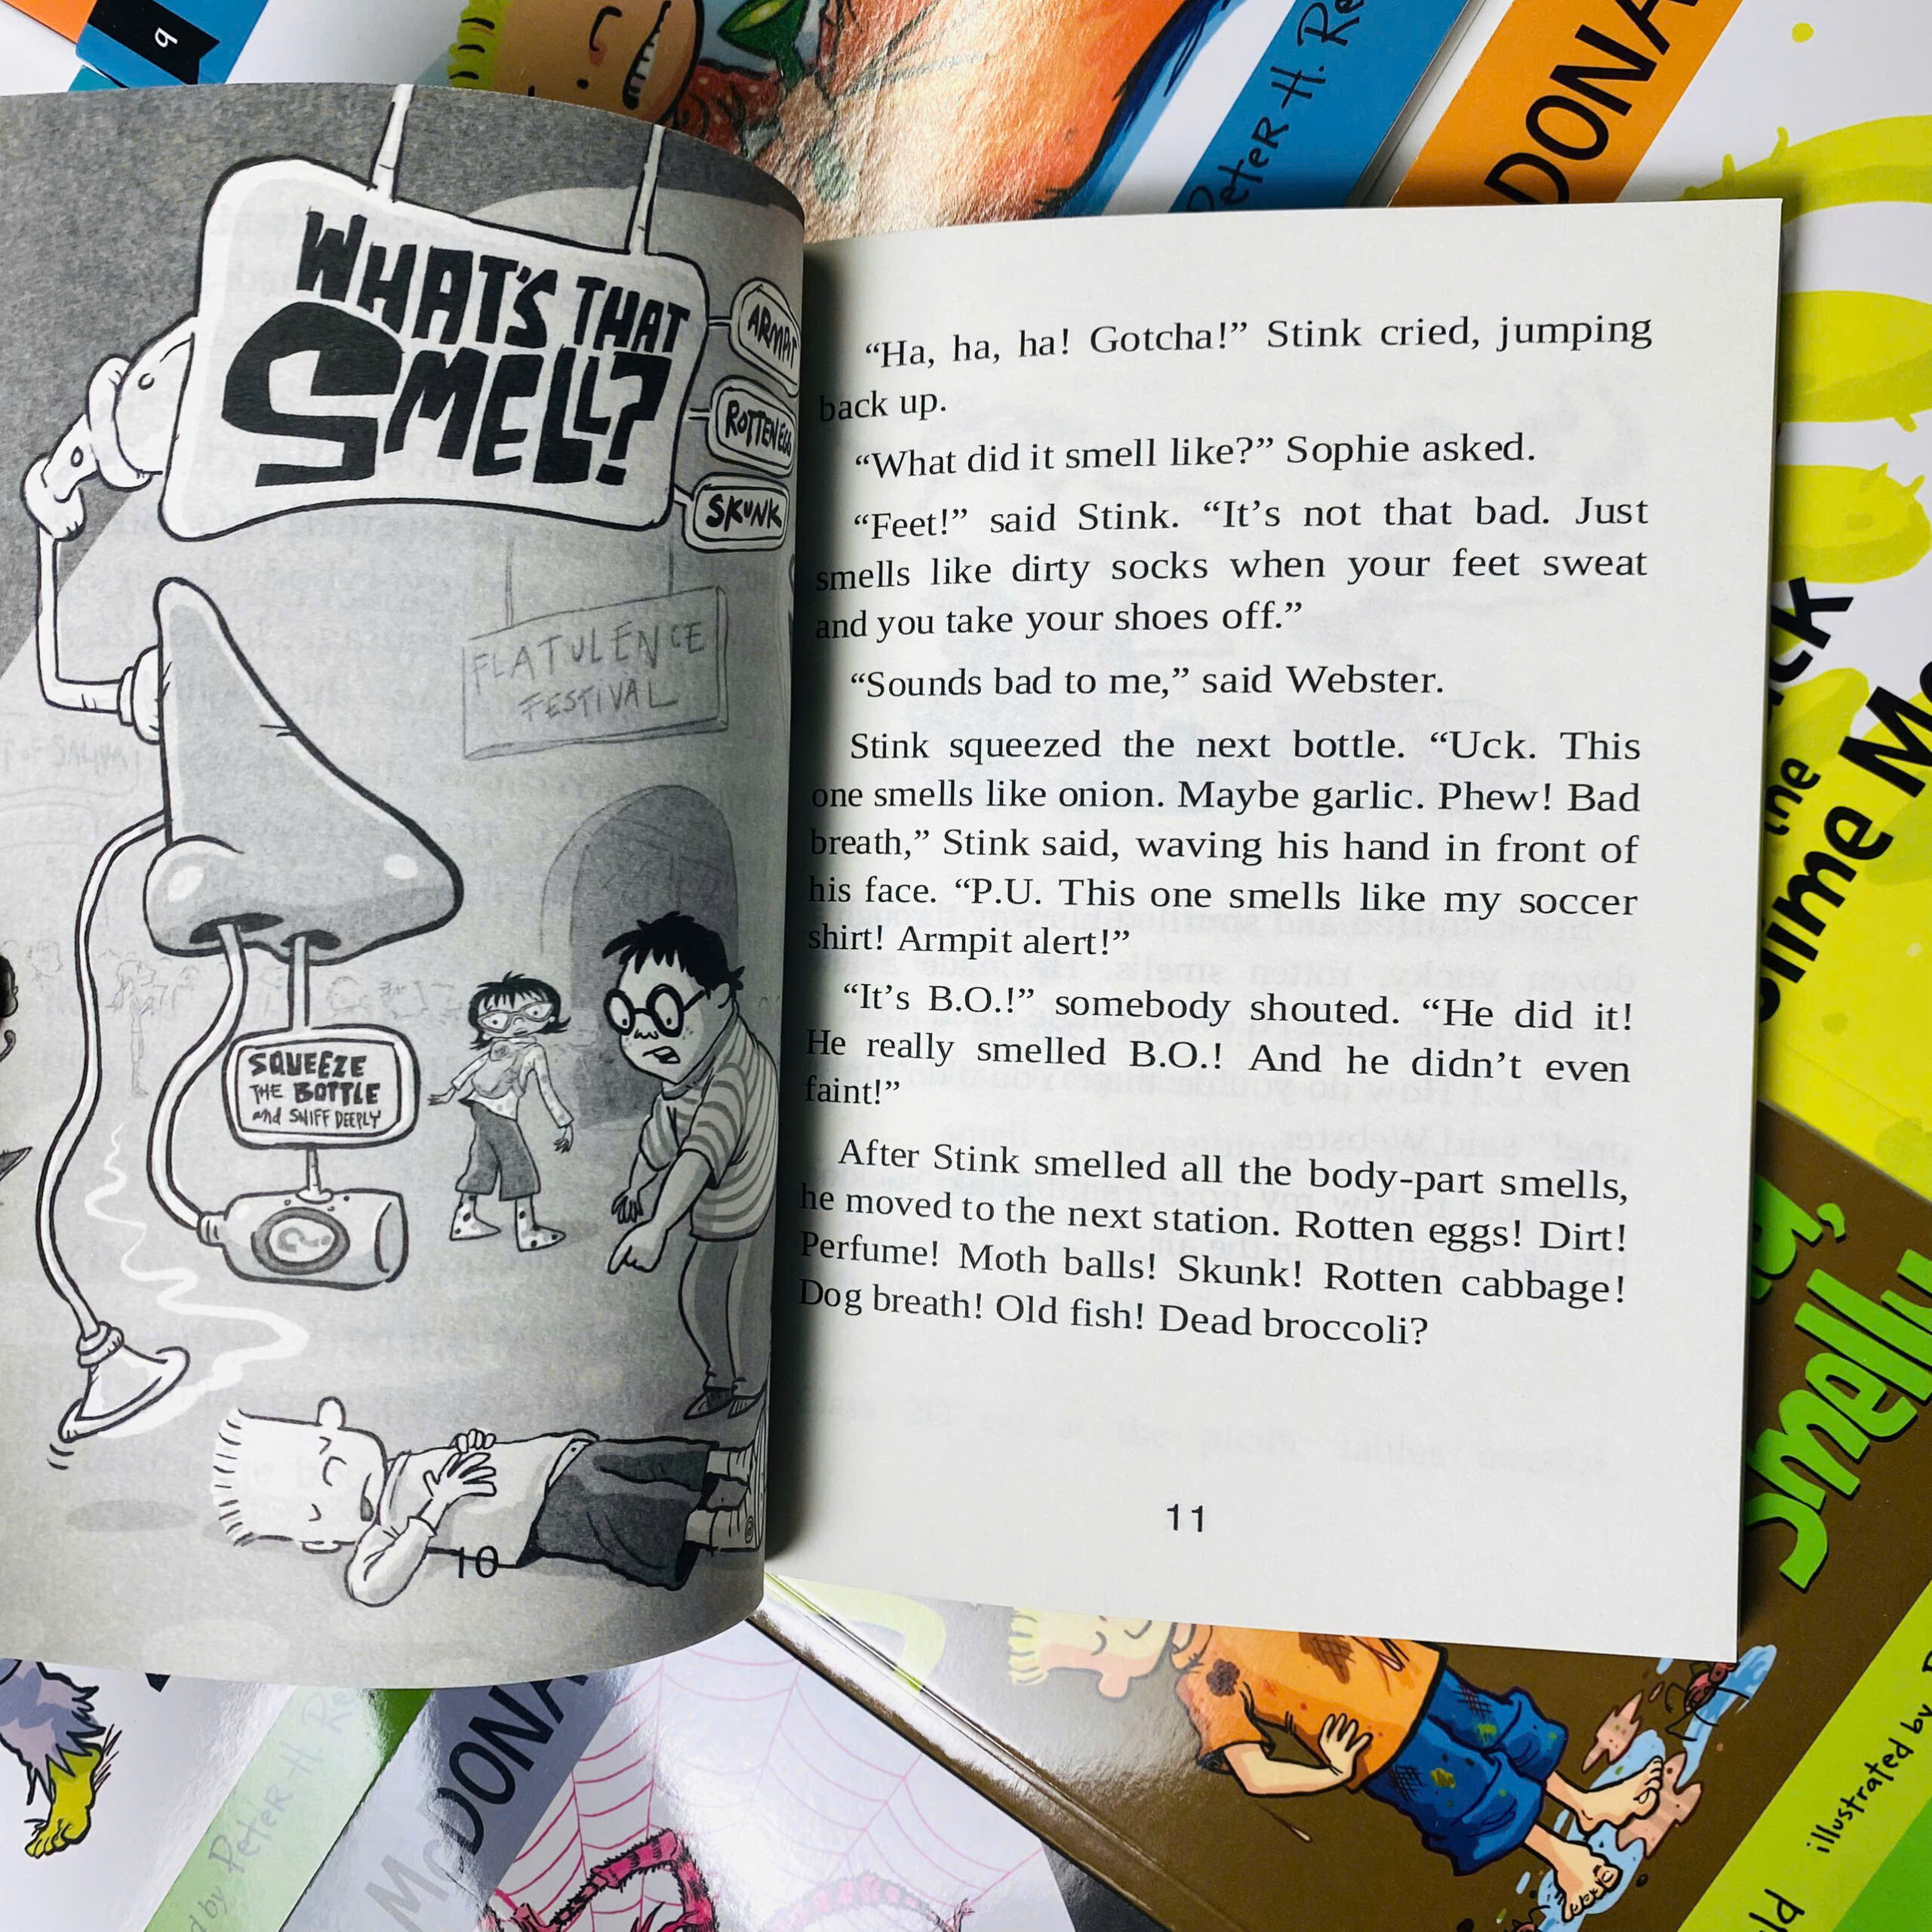 9
Peter H. Re
DONA
WHAT'S THAT
SMELL?
ARMPIT
ROTTEN EGG
SKUNK
FLATULENCE
FESTIVAL
SQUEEZE
THE BOTTLE
and SNIFF DEEPLY
?
10
“Ha, ha, ha! Gotcha!” Stink cried, jumping
back up.
“What did it smell like?” Sophie asked.
“Feet!” said Stink. “It’s not that bad. Just
smells like dirty socks when your feet sweat
and you take your shoes off.”
“Sounds bad to me,” said Webster.
Stink squeezed the next bottle. “Uck. This
one smells like onion. Maybe garlic. Phew! Bad
breath,” Stink said, waving his hand in front of
his face. “P.U. This one smells like my soccer
shirt! Armpit alert!”
“It’s B.O.!” somebody shouted. “He did it!
He really smelled B.O.! And he didn’t even
faint!”
After Stink smelled all the body-part smells,
he moved to the next station. Rotten eggs! Dirt!
Perfume! Moth balls! Skunk! Rotten cabbage!
Dog breath! Old fish! Dead broccoli?
11
the
lime Mo
Smelly
illustrated by
ld
d by Peter H. Re
McDONA